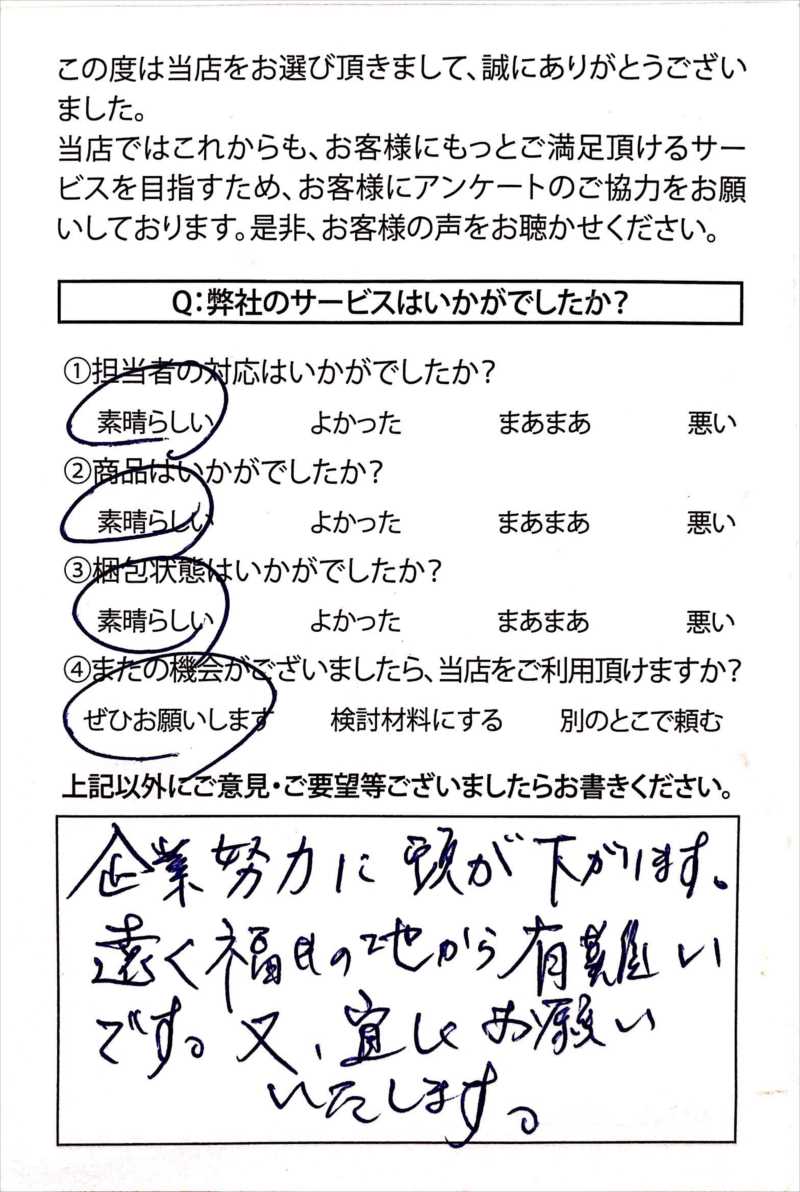 この度は当店をお選び頂きまして、誠にありがとうござい
ました。
当店ではこれからも、お客様にもっとご満足頂けるサー
ビスを目指すため、お客様にアンケートのご協力をお願
いしております。是非、お客様の声をお聴かせください。
Q:弊社のサービスはいかがでしたか?
①担当者の対応はいかがでしたか?
素晴らしい よかった まあまあ 悪い
②商品はいかがでしたか?
素晴らしい よかった まあまあ 悪い
③梱包状態はいかがでしたか?
素晴らしい よかった まあまあ 悪い
④またの機会がございましたら、当店をご利用頂けますか?
ぜひお願いします 検討材料にする 別のとこで頼む
上記以外にご意見・ご要望等ございましたらお書きください。
企業努力に頭が下がります。
遠く福の地から有難い
です。又、宜しくお願い
いたします。